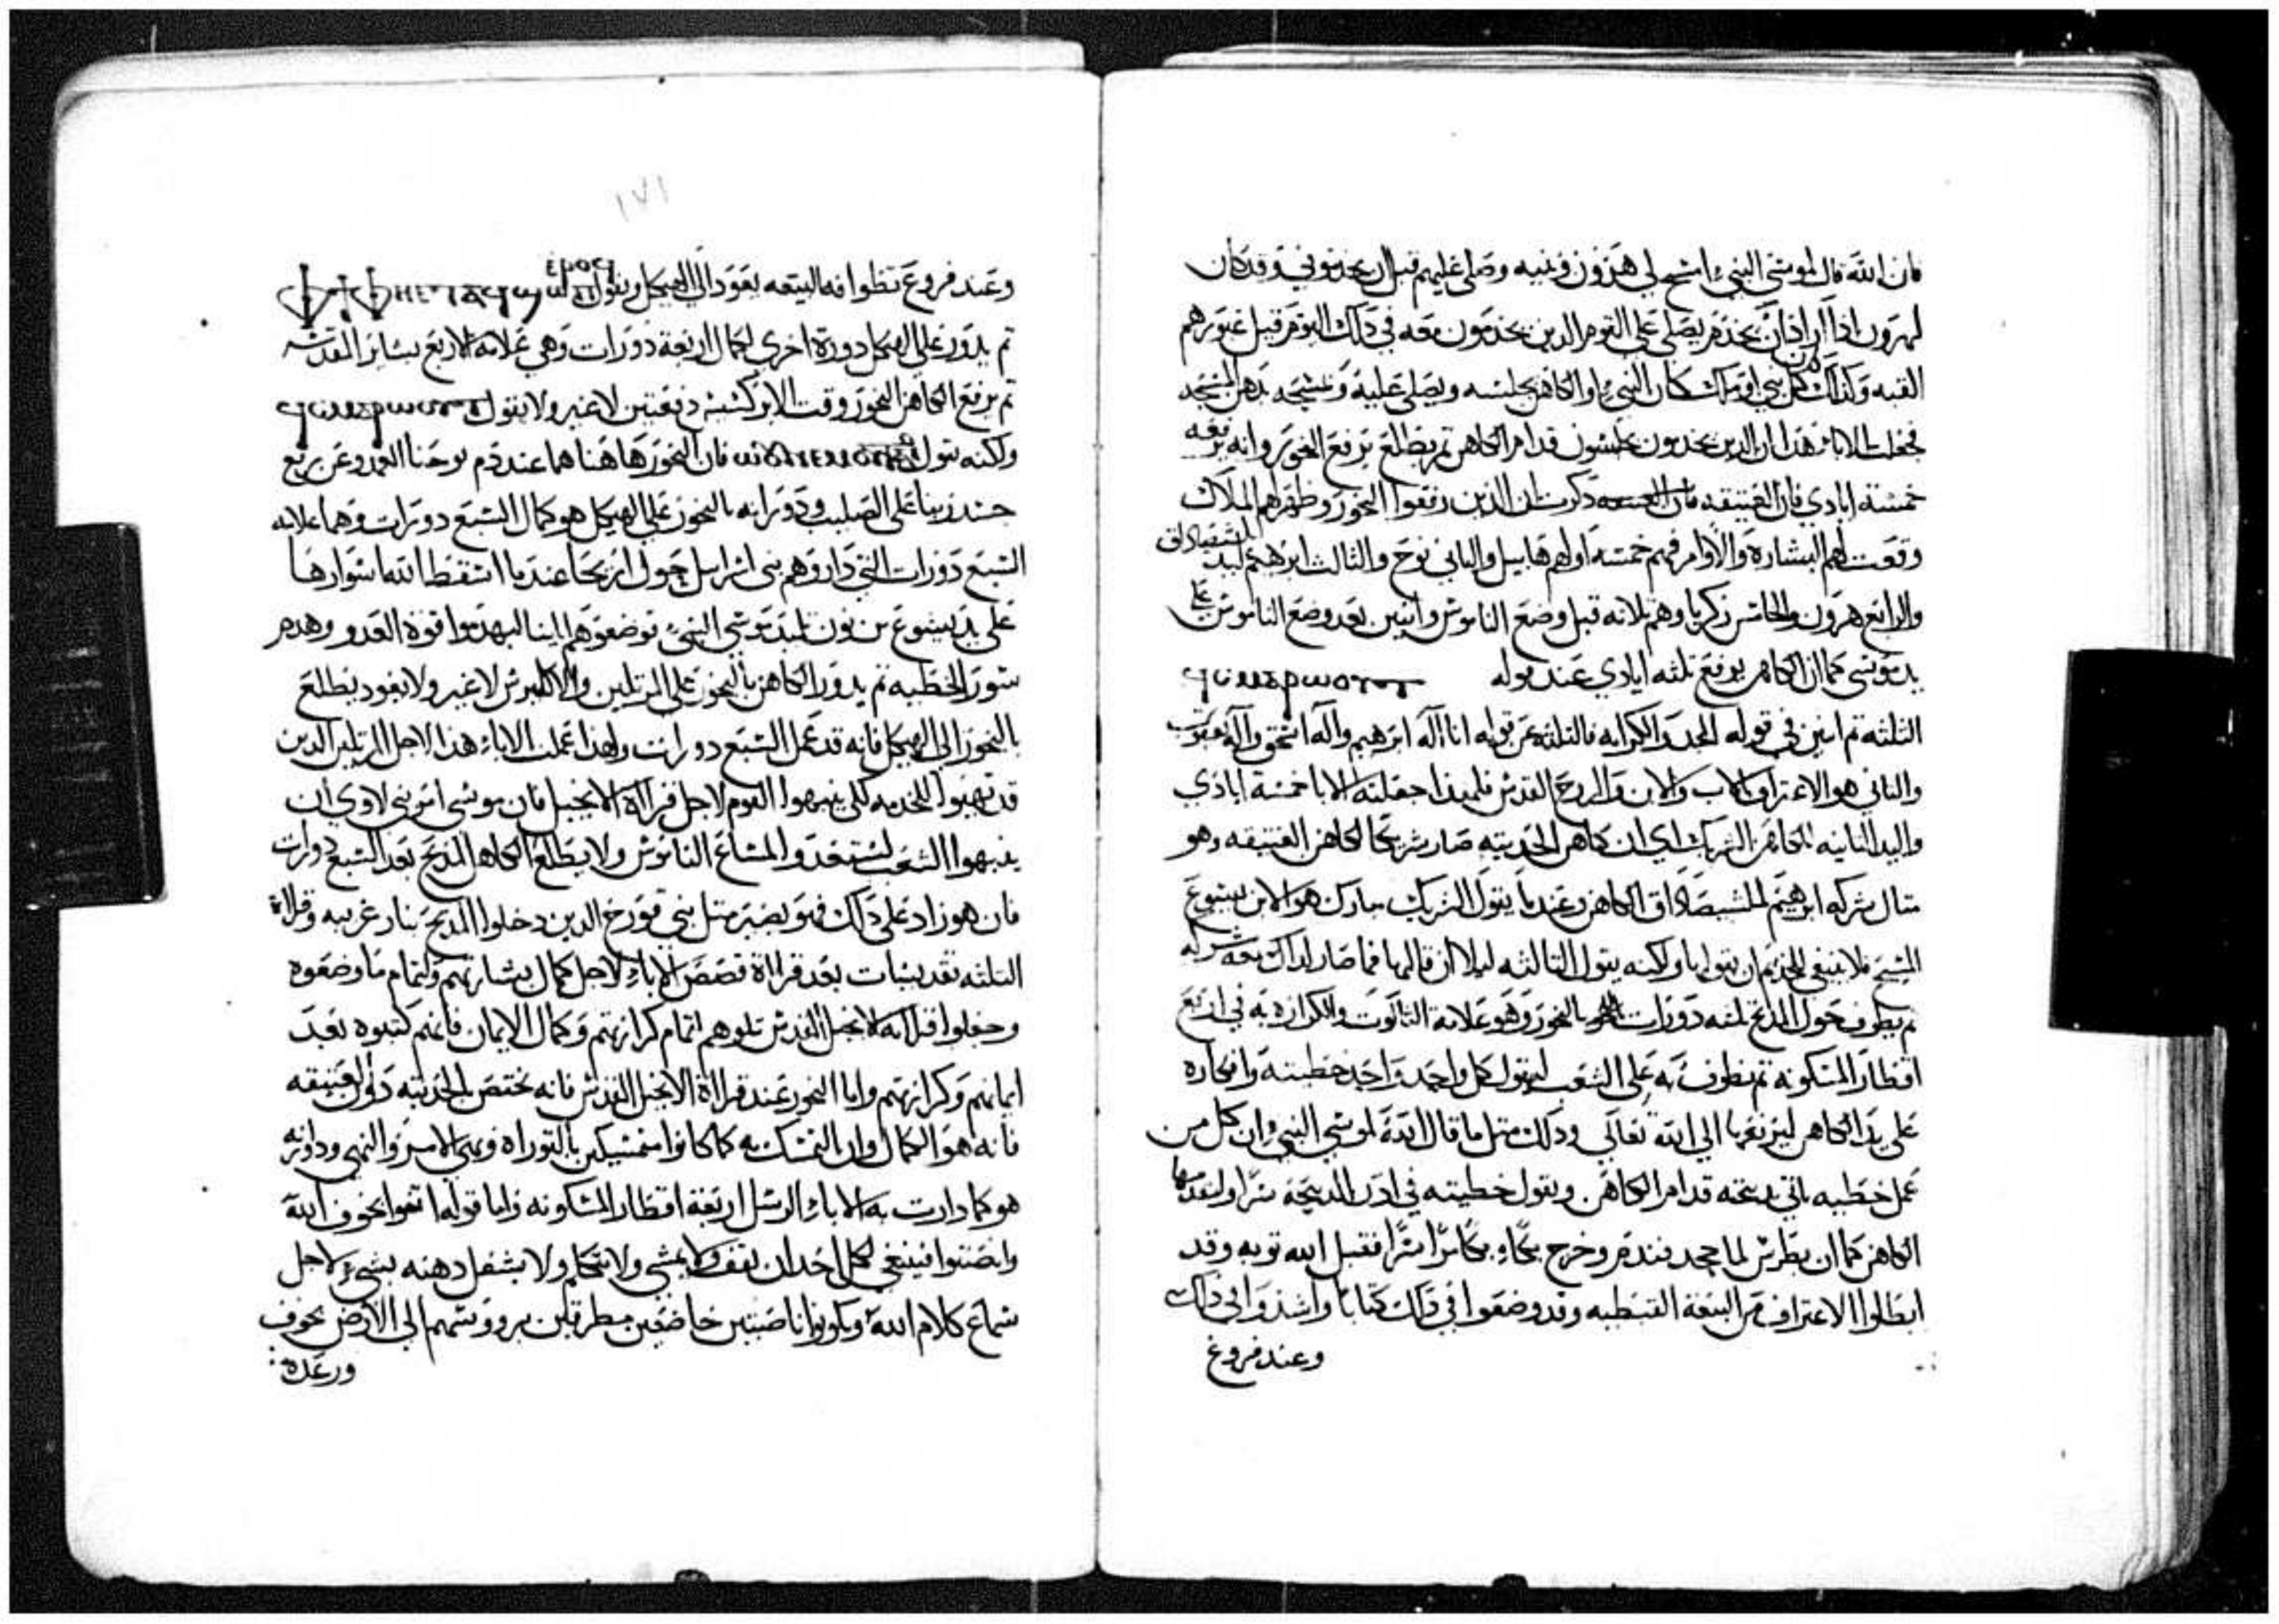 فان الله قال لموسى النبيء امسح لي هرون وبنيه وصلي عليهم قبل ان يخدموني وقد كان
لهرون اذا اراد ان يخدم يصلي على القوم الذين يخدمون معه في ذلك اليوم قبل عبورهم
القبه وكذلك كل نبي او ملك كان النبيء او الكاهن يجلسه ويصلي عليه ويمسحه بدهن المسحه
فجعلت الاباء هذا ان الذين يخدمون يجلسون قدام الكاهن ثم يطلع يرفع البخور وانه يرفعه
خمسة ايادي فان العتيقه ذكرت ان الذين رفعوا البخور وظهر لهم الملاك
وقعت لهم البشاره والاوامر فهم خمسه اولهم هابيل والثاني نوح والثالث ابرهيم لملشيصاداق
والرابع هرون والخامس زكريا وهم ثلاثه قبل وضع الناموس واثنين بعد وضع الناموس على
يد موسى كما ان الكاهن يرفع ثلثه ايادي عند قوله
الثلثه ثم اثنين في قوله المجد والكرامه فالثلثه عن قوله انا اله ابرهيم واله اسحق واله يعقوب
والثاني هو الاعتراف بالاب والابن والروح القدس فلهذا جعلته الابا خمسة ايادي
واليد الثانيه للكاهن الشريك اي ان كاهن الحديثه صار شريكا لكاهن العتيقه وهو
مثال شركه ابرهيم لملشيصاداق الكاهن وعندما يقول الشريك مبارك هو الابن يسوع
المسيح فلا ينبغي للخديم ان يقولها ولكنه يقول الثالثه ليلا ان قالها فما صار لذاك معه شركه
ثم يطوف حول المذبح ثلثه دورات بالبخور وهو علامة الثالوت والكرازه به في اربع
اقطار المسكونه ثم يطوف به على الشعب ليقول كل واحد واحد خطيته وافكاره
على يد الكاهن ليرفعها الي الله تعالي وذلك مثل ما قال الله لموسي النبي وان كل من
عمل خطيه ياتي بذبيحته قدام الكاهن ويقول خطيته في اذن الذبيحة سرا وليقدمها
الكاهن كما ان بطرس لما جحد فندم وخرج بكاء بكاء مرا فقبل الله توبه وقد
ابطلوا الاعتراف من البيعة القبطيه وقد وضعوا في ذلك كتابا واسندوا في ذلك
وعند فروغ
١٧١
وعند فروغ تطوافه البيعه يعود الي الهيكل ويقول
ثم يدور على الهيكل دورة اخري لكمال اربعة دورات وهي علامه الاربع بشاير المقدسه
ثم يرفع الكاهن البخور وقت الابركسيس دفعتين لاغير ولا يقول
ولكنه يقول فان البخور هاهنا هما عند دم يوحنا المعمد وعن بريع
جسد ربنا على الصليب ودورانه بالبخور على الهيكل هو كمال السبع دورات وهما علامه
السبع دورات التي داروهم بني اسرايل حول اريحا عندما اسقط الله اسوارها
على يد يسوع بن نون تلميذ موسي النبيء توضعوهم الينا ليهدموا قوة العدو وهدم
سور الخطيه ثم يدور الكاهن بالبخور على المرتلين والاكليرس لاغير ولا يعود يطلع
بالبخور الى الهيكل فانه قد عمل السبع دورات ولهذا عملت الاباء هذا لاجل المرتلين الذين
قد تهيوا للخدمه لكي ينبهوا القوم لاجل قراة الانجيل فان موسى امر بني لاوي ان
ينبهوا الشعب ليستعدوا لسماع الناموس ولا يطلع الكاهن المذبح بعد السبع دورات
فان هو زاد على ذلك فهو يصير مثل بني قورح الذين دخلوا المذبح بنار غريبه وقراة
الثلثه تقديسات بعد قراة قصص الاباء لاجل كمال بشارتهم ولتمام ما وضعوه
وجعلوا قراة الانجيل المقدس تلوهم اتمام كرازتهم وكمال الايمان فانهم كتبوه بعد
ايمانهم وكرازتهم واما البخور عند قراة الانجيل المقدس فانه يختص بالحديثه دون العتيقه
فانه هو الكمال وان التمسك به كما كانوا متمسكين بالتوراه وهي الامر والنهي ودورته
هو كما دارت به الاباء الرسل اربعة اقطار المسكونه واما قوله اقفوا بخوف الله
وانصتوا فينبغي لكل احد ان يقف ولا يمشي ولا يتكلم ولا يشغل دهنه بشيء لاجل
سماع كلام الله ويكونوا ناصتين خاضعين مطرقين برووسهم الى الارض بخوف
ورعده: